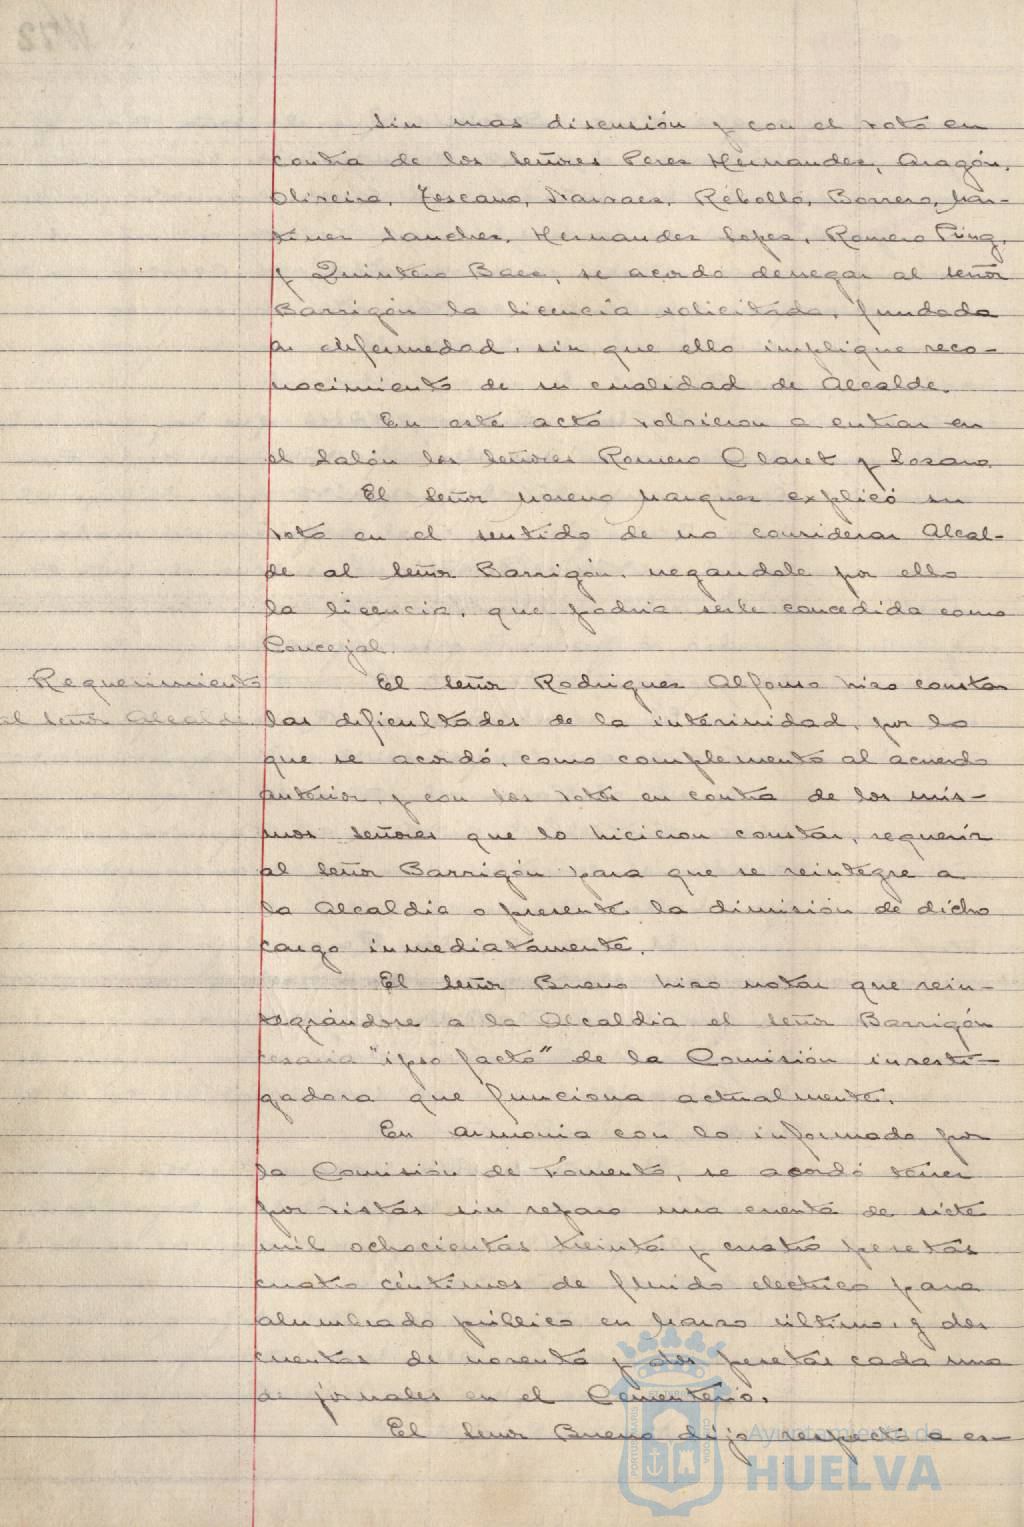 Sin mas discusión y con el voto en
contra de los Señores Perez Hernandez, Aragón,
Oliveira, Toscano, Narvaez, Rebollo, Borrero, Mar-
tinez Sanchez, Hernandez Lopez, Romero Puig,
y Quintero Baez, se acordo denegar al Señor
Barrigón la licencia solicitada, fundada
en enfermedad, sin que ello implique reco-
nocimiento de su cualidad de Alcalde.
En este acto volvieron a entrar en
el Salón los Señores Romero Claret y Lozano
El Señor Moreno Marquez explicó su
voto en el sentido de no considerar Alcal-
de al Señor Barrigón, negandole por ello
la licencia, que podria serle concedida como
Concejal.
Requerimiento
al Señor Alcalde
El Señor Rodriguez Alfonso hizo constar
las dificultades de la interinidad, por lo
que se acordó, como complemento al acuerdo
anterior, y con los votos en contra de los mis-
mos Señores que lo hicieron constar, requerir
al Señor Barrigón para que se reintegre a
la Alcaldia o presente la dimisión de dicho
cargo inmediatamente.
El Señor Bueno hizo notar que rein-
tegrándose a la Alcaldia el Señor Barrigón
cesaria "ipso facto" de la Comisión investi-
gadora que funciona actualmente.
En armonia con lo informado por
la Comisión de Fomento, se acordó tener
por vistas sin reparo una cuenta de siete
mil ochocientas treinta y cuatro pesetas
cuatro céntimos de fluido electrico para
alumbrado público en Marzo último, y dos
cuentas de noventa y dos pesetas cada una
de jornales en el Cementerio.
El Señor Bueno dijo respecto a es-
Ayuntamiento de
HUELVA
PORTUS MARIS
ET TERRAE
CUSTODIA